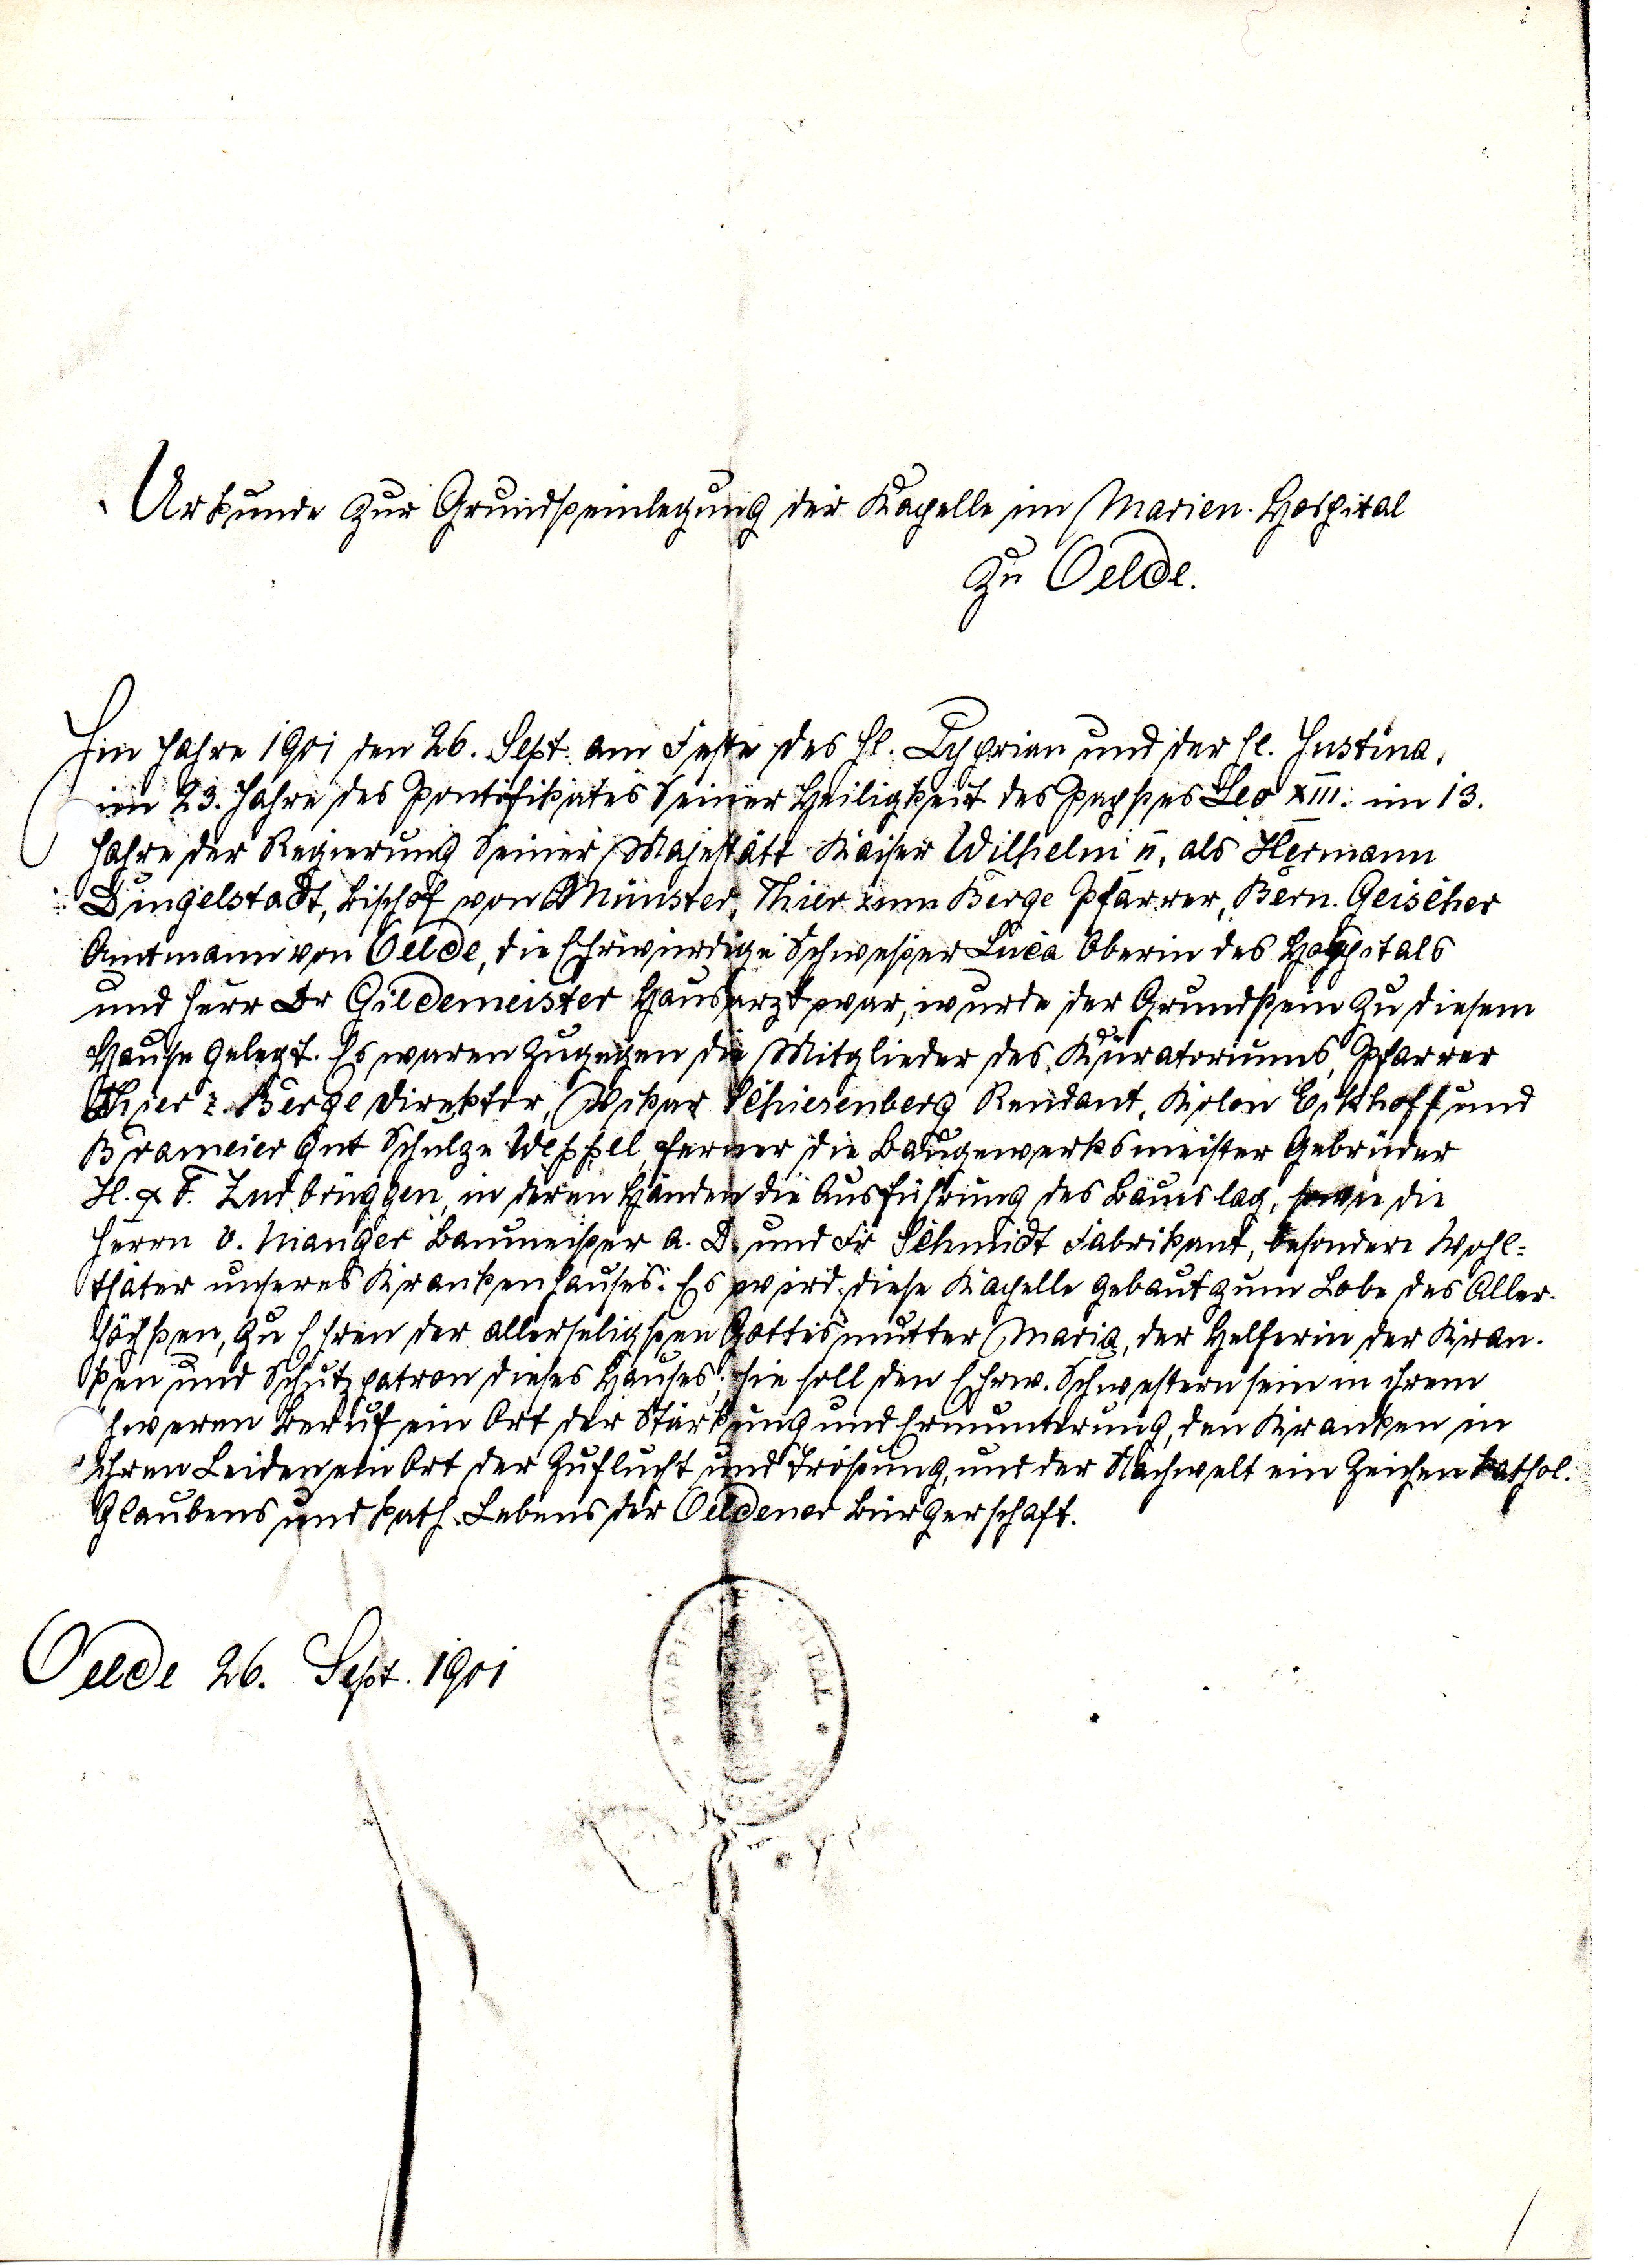 Urkunde zur Grundsteinlegung der Kapelle im Marien-Hospital
zu Oelde.
Im Jahre 1901 den 26. Sept. am Feste des hl. Cyprian und der hl. Justina,
im 23. Jahre des Pontifikates Seiner Heiligkeit des Papstes Leo XIII. im 13.
Jahre der Regierung Seiner Majestätt Kaiser Wilhelm II, als Hermann
Dingelstadt, Bischof von Münster, Thier zum Berge Pfarrer, Bern. Geischer
Amtmann von Oelde, die Ehrwürdige Schwester Luca Oberin des Hospitals
und Herr Dr Gildemeister Hausarzt war, wurde der Grundstein zu diesem
Hause gelegt. Es waren zugegen die Mitglieder des Kuratoriums, Pfarrer
Thier z. Berge Direktor, Vikar Schiesenberg Rendant, Kolon Eickhoff und
Brameier gnt Schulze Weppel, ferner die Baugewerksmeister Gebrüder
H. & F. Zurbrüggen, in deren Händen die Ausführung des Baues lag, sowie die
Herrn v. Manger Baumeister a. D. und Fr Schmidt Fabrikant, besondere Wohl-
thäter unseres Krankenhauses. Es wird diese Kapelle gebaut zum Lobe des Aller-
höchsten, zu Ehren der allerseligsten Gottesmutter Maria, der Helferin der Kran-
ken und Schutzpatron dieses Hauses; sie soll den Ehrw. Schwestern sein in ihrem
schweren Beruf ein Ort der Stärkung und Ermunterung, den Kranken in
ihren Leiden ein Ort der Zuflucht und Tröstung, und der Nachwelt ein Zeichen kathol.
Glaubens und kath. Lebens der Oeldener Bürgerschaft.
Oelde 26. Sept. 1901